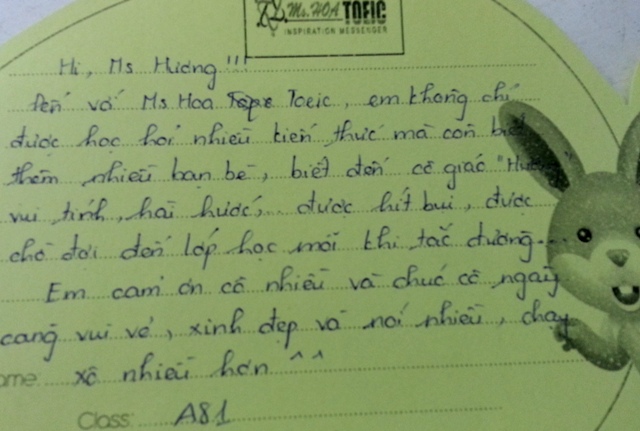 Ms. HOA TOEIC
INSPIRATION MESSENGER
Hi, Ms Hương!!!
Đến với Ms Hoa Toeic, em không chỉ
được học hỏi nhiều kiến thức mà còn biết
thêm nhiều bạn bè, biết đến cô giáo "Hương"
vui tính, hài hước, được hít bụi, được
chờ đợi đến lớp học mỗi khi tắc đường...
Em cảm ơn cô nhiều và chúc cô ngày
càng vui vẻ, xinh đẹp và nói nhiều, chạy
xô nhiều hơn ^^
ame:
Class: A81